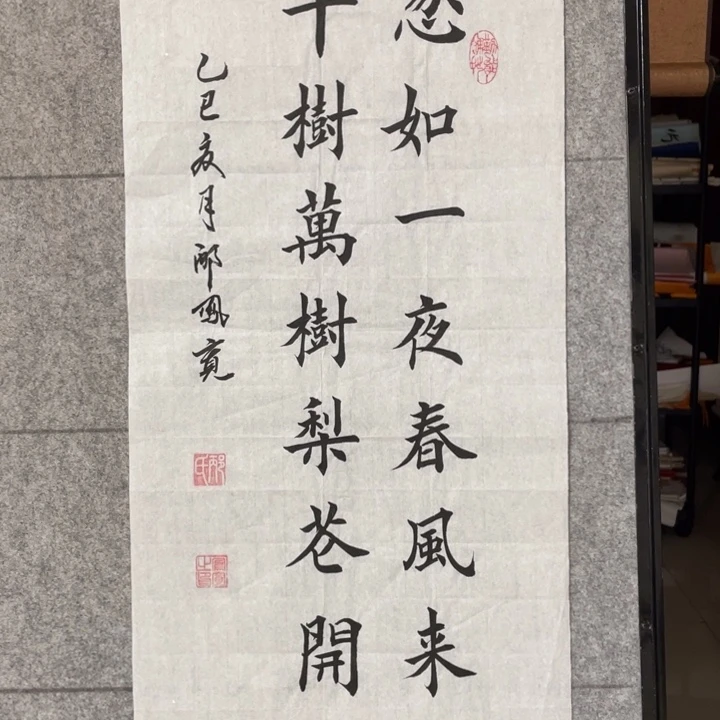 忽如一夜春風来
千樹萬樹梨花開
乙巳夏月鳳寬